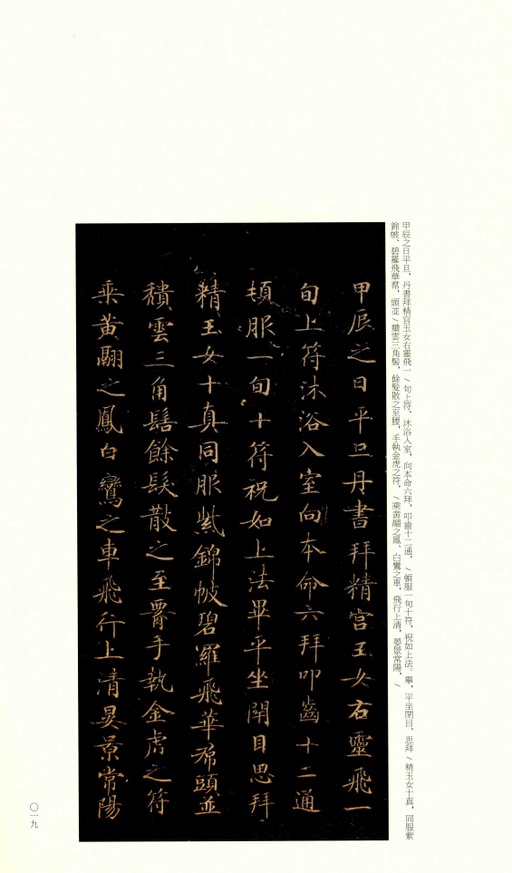 甲辰之日平旦，丹書拜精宮玉女右靈飛一／旬上符，沐浴入室，向本命六拜，叩齒十二通，／頓服一旬十符，祝如上法。畢，平坐閉目，思拜／精玉女十真，同服紫
錦帔、碧羅飛華帬，頭並／積雲三角髻，餘髮散之至腰，手執金虎之符，／乘黃翮之鳳、白鸞之車，飛行上清，晏景常陽，／
甲辰之日平旦丹書拜精宮玉女右靈飛一
旬上符沐浴入室向本命六拜叩齒十二通
頓服一旬十符祝如上法畢平坐閉目思拜
精玉女十真同服紫錦帔碧羅飛華帬頭並
積雲三角髻餘髮散之至腰手執金虎之符
乘黃翮之鳳白鸞之車飛行上清晏景常陽
〇一九